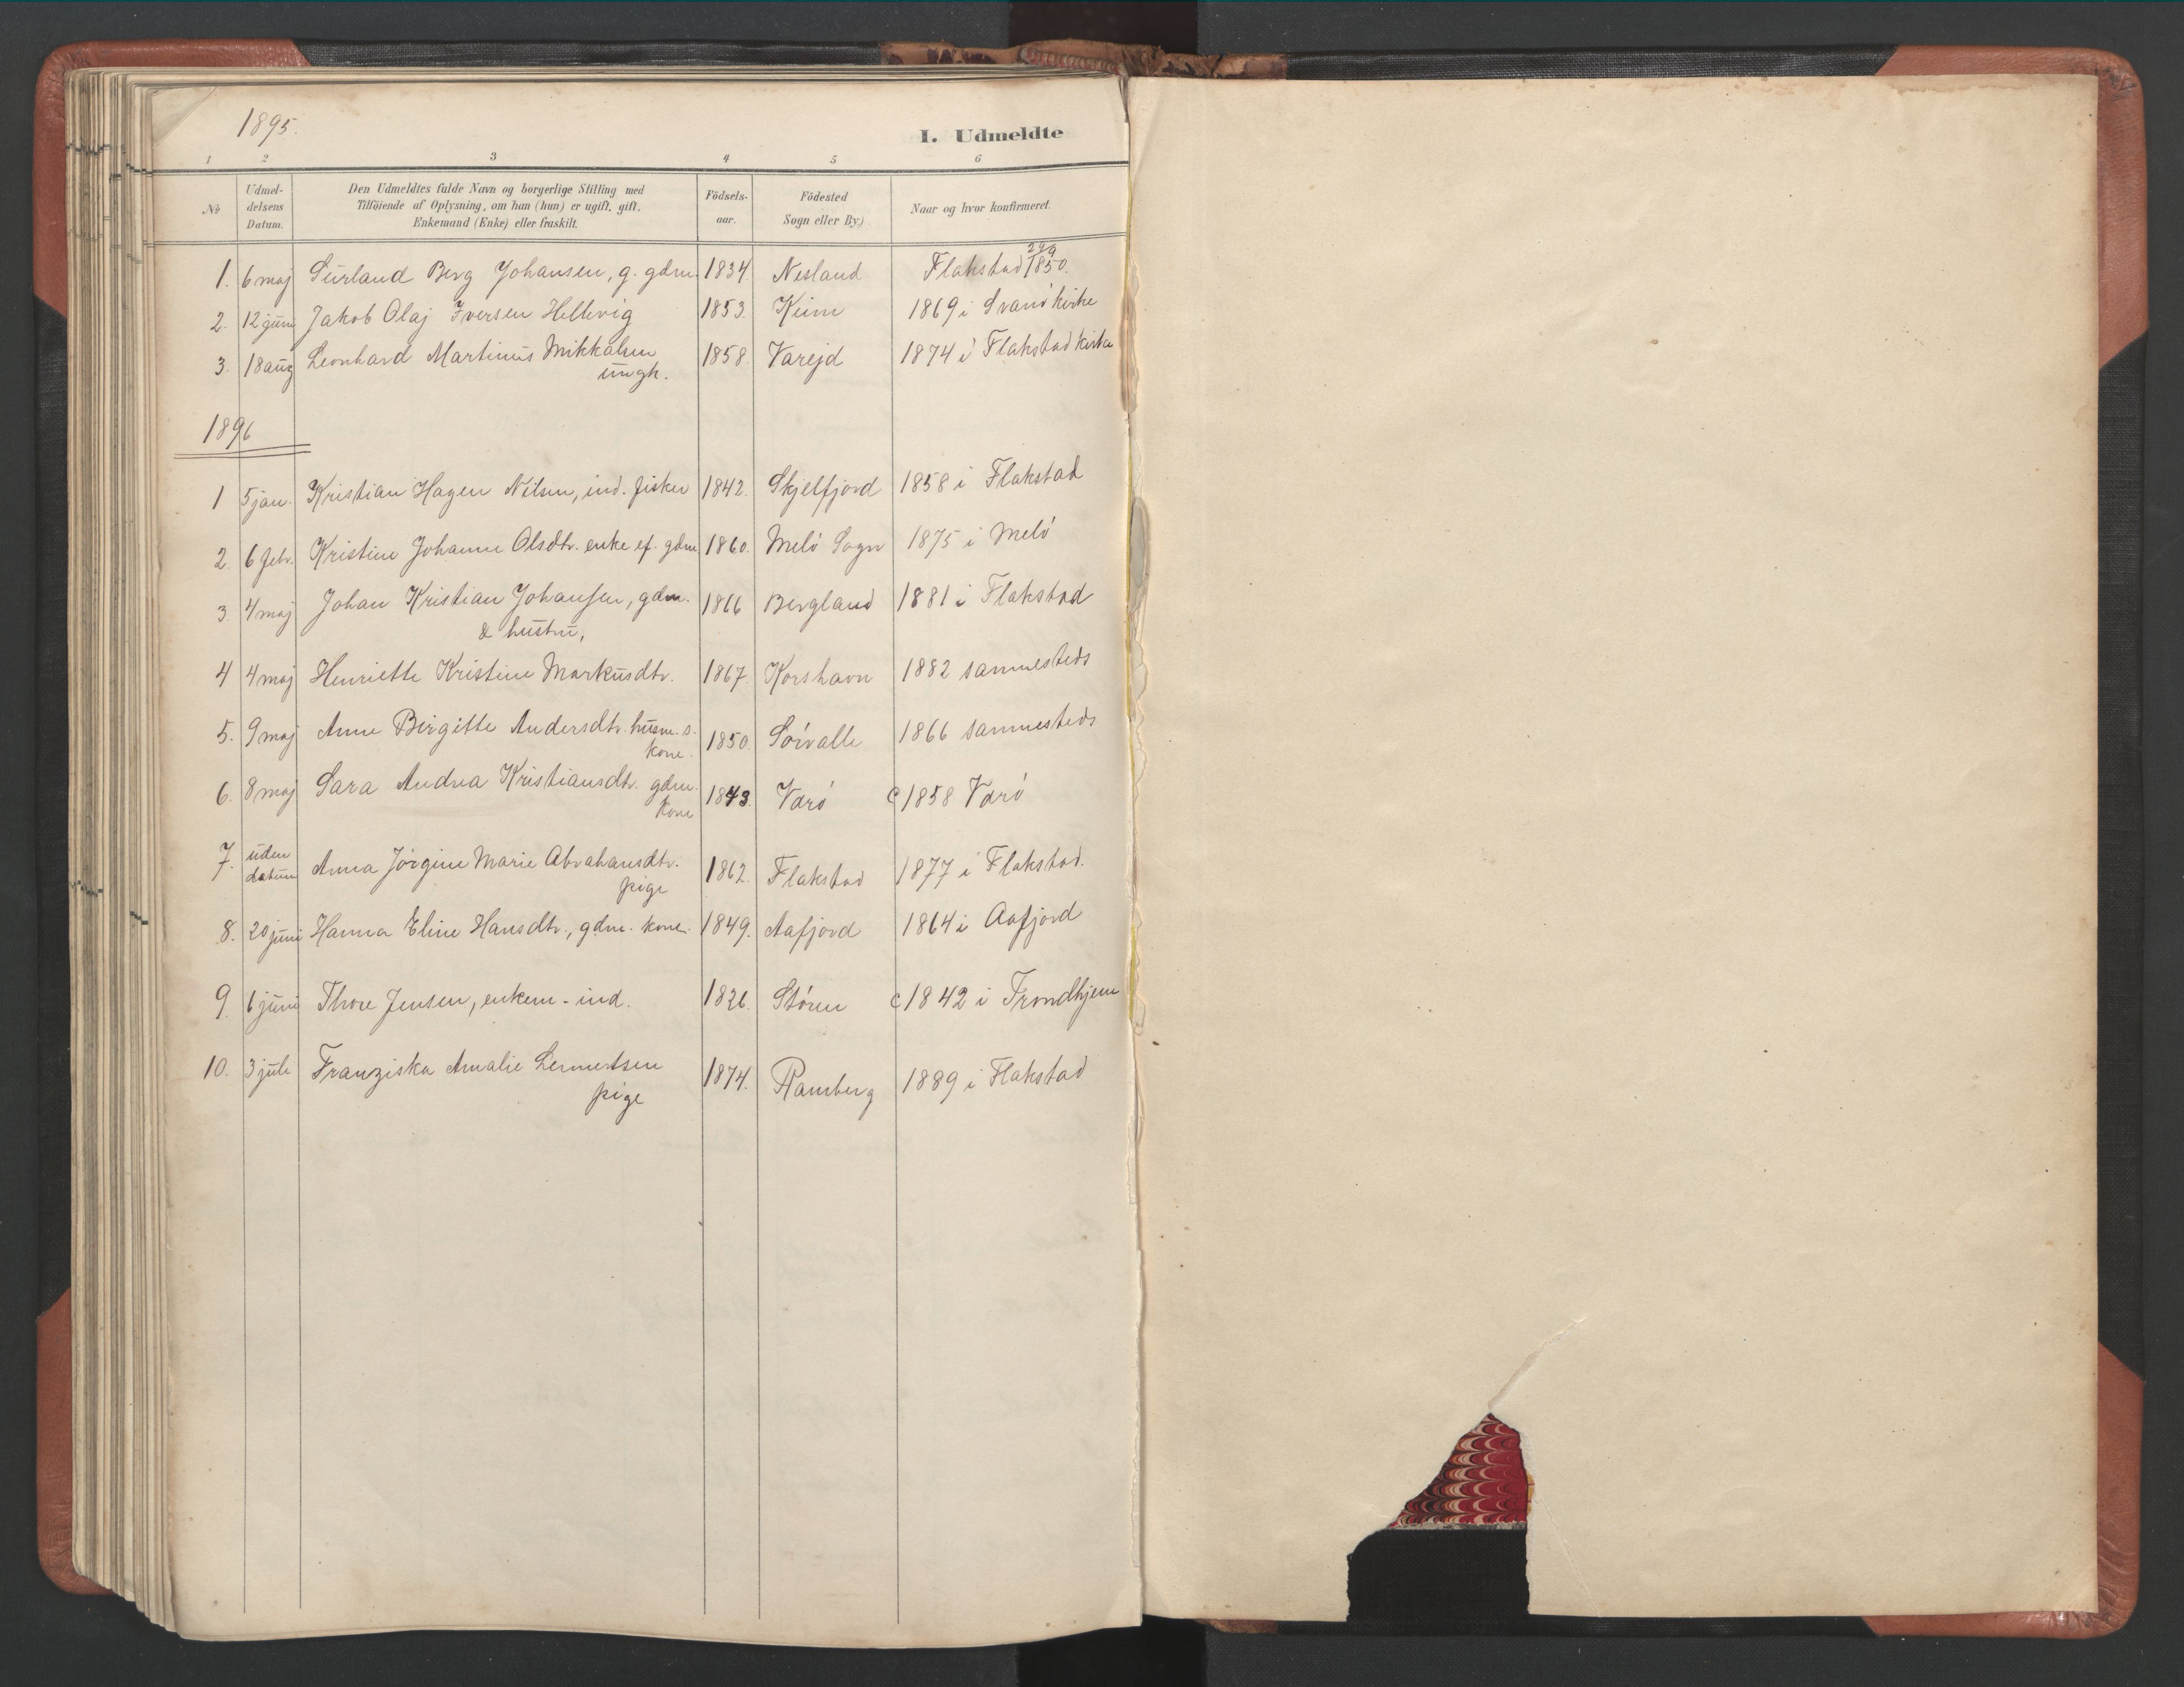 1895.
I. Udmeldte
1 2 3 4 5 6
No
Udmel-
delsens
Datum.
Den Udmeldtes fulde Navn og borgerlige Stilling med
Tilföiende af Oplysning, om han (hun) er ugift, gift,
Enkemand (Enke) eller fraskilt.
Födsels-
aar.
Födested
Sogn eller By.)
Naar og hvor konfirmeret.
1. 6 maj Sürland Berg Johansen, g. gdm. 1834 Nesland Flakstad 29/9 1850.
2. 12 juni Jakob Olaj Iversen Hellevig 1853. Keim 1869 i Svanö kirke
3. 18 aug Leonhard Martinus Mikkalsen 1858. Varejd 1874 i Flakstad kirke
ungk.
1896
1 5 jan. Kristian Hagen Nilsen, ind. fisker 1842. Skjelfjord 1858 i Flakstad
2. 6 febr. Kristine Johanne Olsdtr. enke ef. gdm 1860. Melö Sogn 1875 i Melö
3 4 maj Johan Kristian Johansen, gdm. 1866 Bergland 1881 i Flakstad
& hustru,
4 4 maj Henriette Kristine Markusdtr. 1867 Korshavn 1882 sammesteds
5. 9 maj Anne Birgitte Andersdtr. husm. s. 1850. Sörvalle 1866 sammesteds
kone.
6. 8 maj Sara Andrea Kristiansdtr. gdm. 1843. Værö c 1858 Værö
kone
7. uden datum Anna Jörgine Marie Abrahamsdtr. 1862. Flakstad 1877 i Flakstad.
pige
8. 20 juni Hanna Eline Hansdtr., gdm. kone. 1849. Aafjord 1864 i Aafjord
9. 6 juni Thore Jensen, enkem - ind. 1826. Stören c 1842 i Trondhjem
10. 3 juli Franziska Amalie Lennertsen 1874. Ramberg 1889 i Flakstad
pige